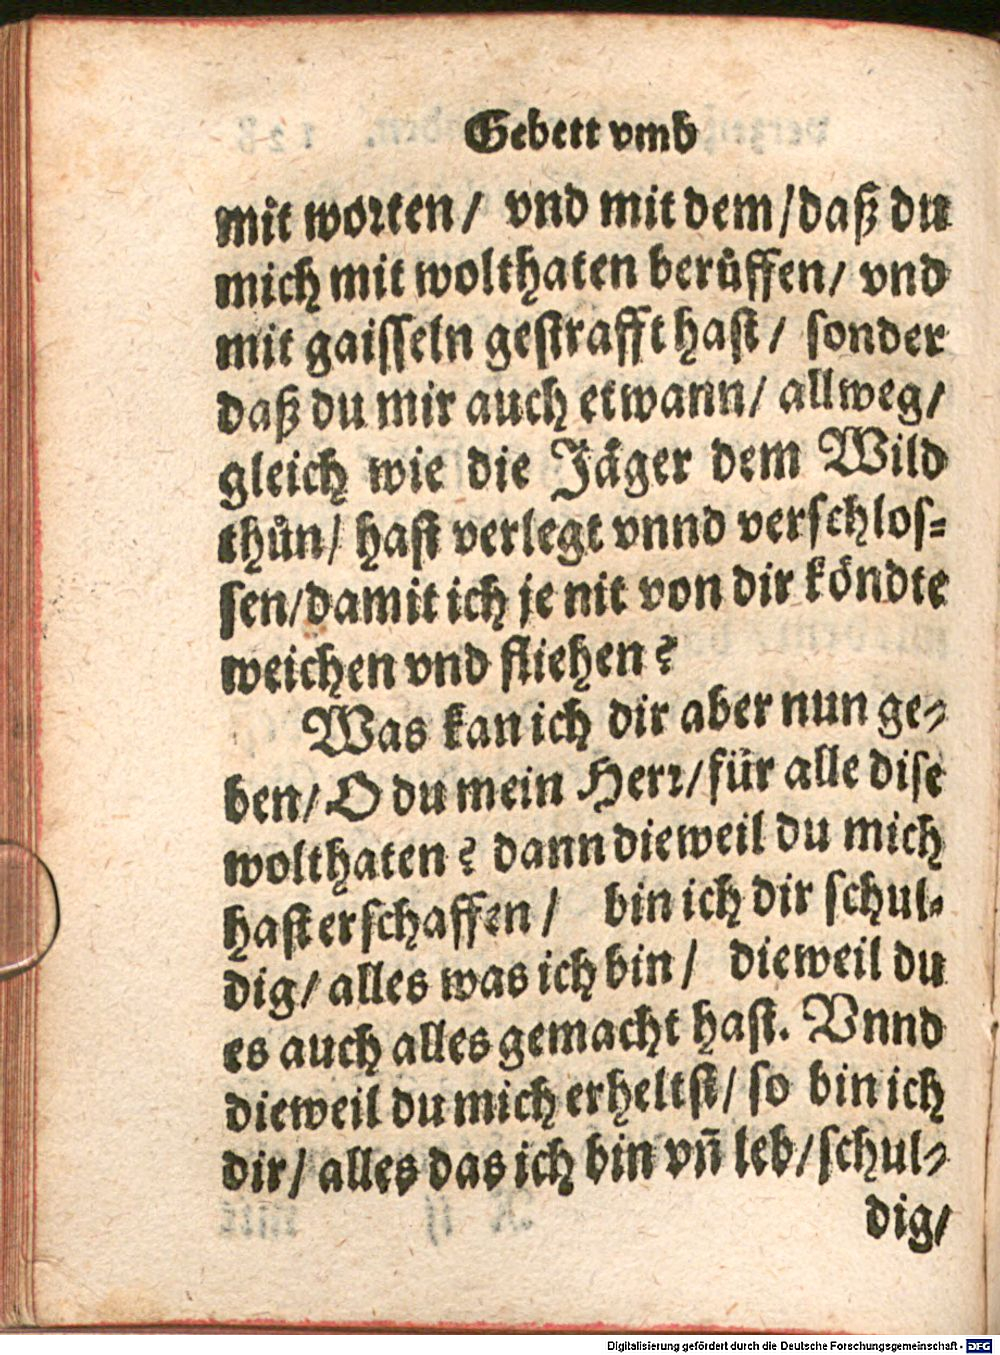 Gebett vmb
mit worten/ vnd mit dem/daß du
mich mit wolthaten berůffen/ vnd
mit gaisseln gestrafft hast/ sonder
daß du mir auch etwann/ allweg/
gleich wie die Jäger dem Wild
thůn/ hast verlegt vnnd verschlos-
sen/damit ich je nit von dir köndte
weichen vnd fliehen?
Was kan ich dir aber nun ge-
ben/ O du mein Herr/für alle dise
wolthaten? dann dieweil du mich
hast erschaffen/ bin ich dir schul-
dig/ alles was ich bin/ dieweil du
es auch alles gemacht hast. Vnnd
dieweil du mich erheltst/ so bin ich
dir/ alles das ich bin vñ leb/schul-
dig/
Digitalisierung gefördert durch die Deutsche Forschungsgemeinschaft - DFG